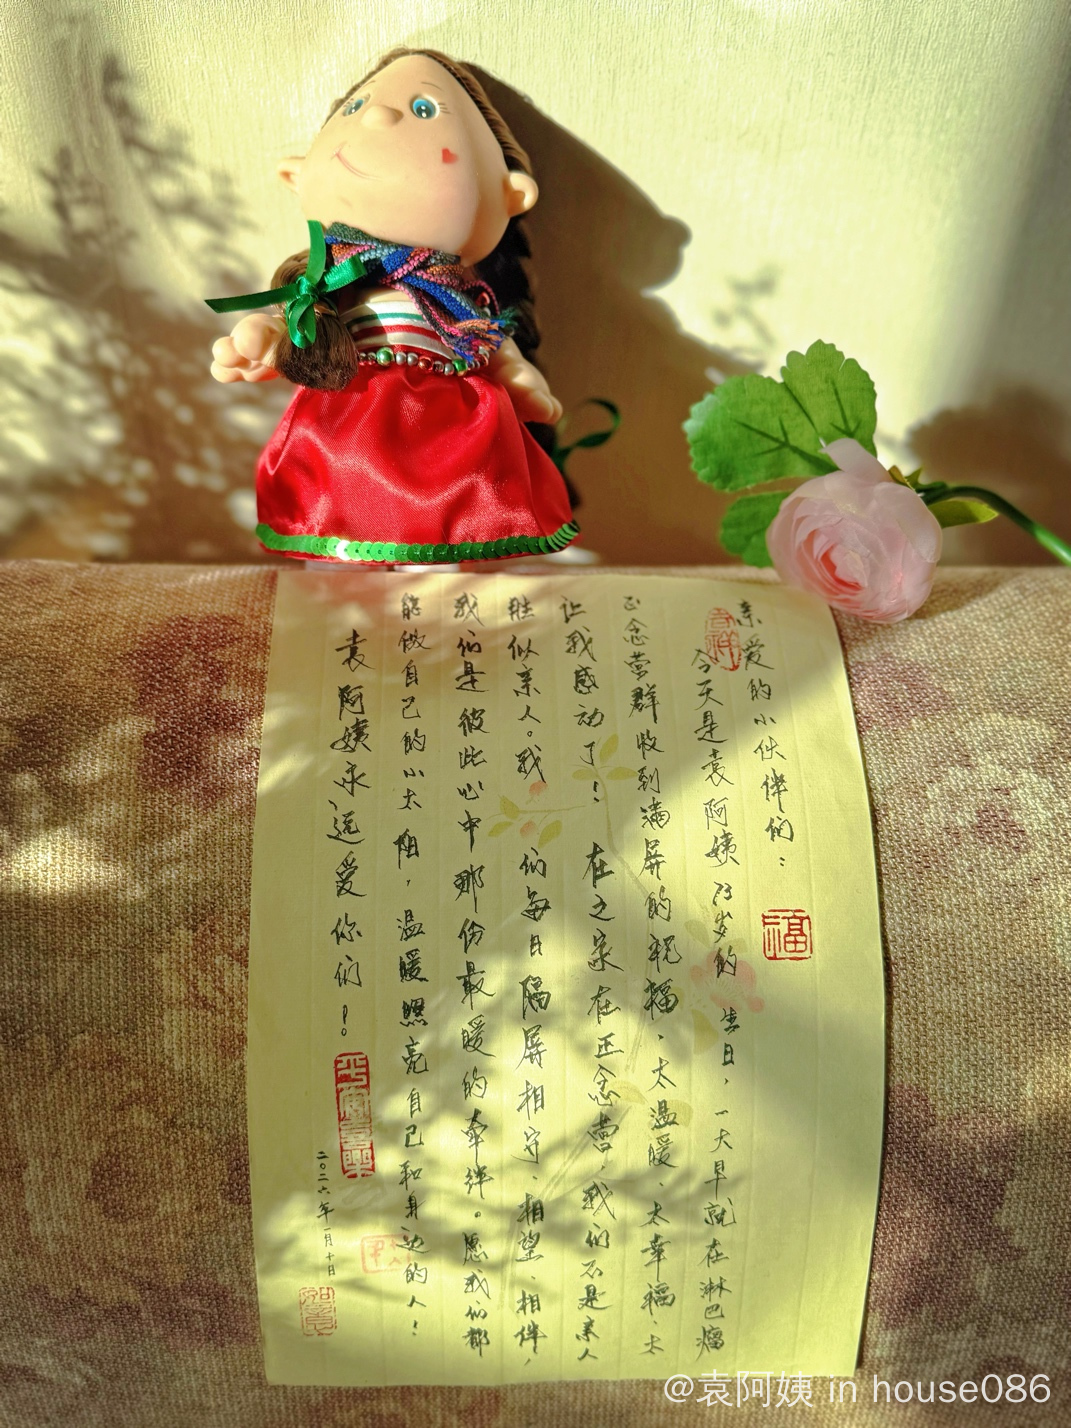 亲爱的小伙伴们：
今天是袁阿姨73岁的生日，一大早就在淋巴瘤
正念营群收到满屏的祝福，太温暖、太幸福、太
让我感动了！在之家在正念营，我们不是亲人
胜似亲人。我们每日隔屏相守、相望、相伴，
我们是彼此心中那份最暖的牵绊。愿我们都
能做自己的小太阳，温暖照亮自己和身边的人！
袁阿姨永远爱你们！
二〇二六年一月十日
吉祥
福
平安喜乐
如意
@袁阿姨 in house086